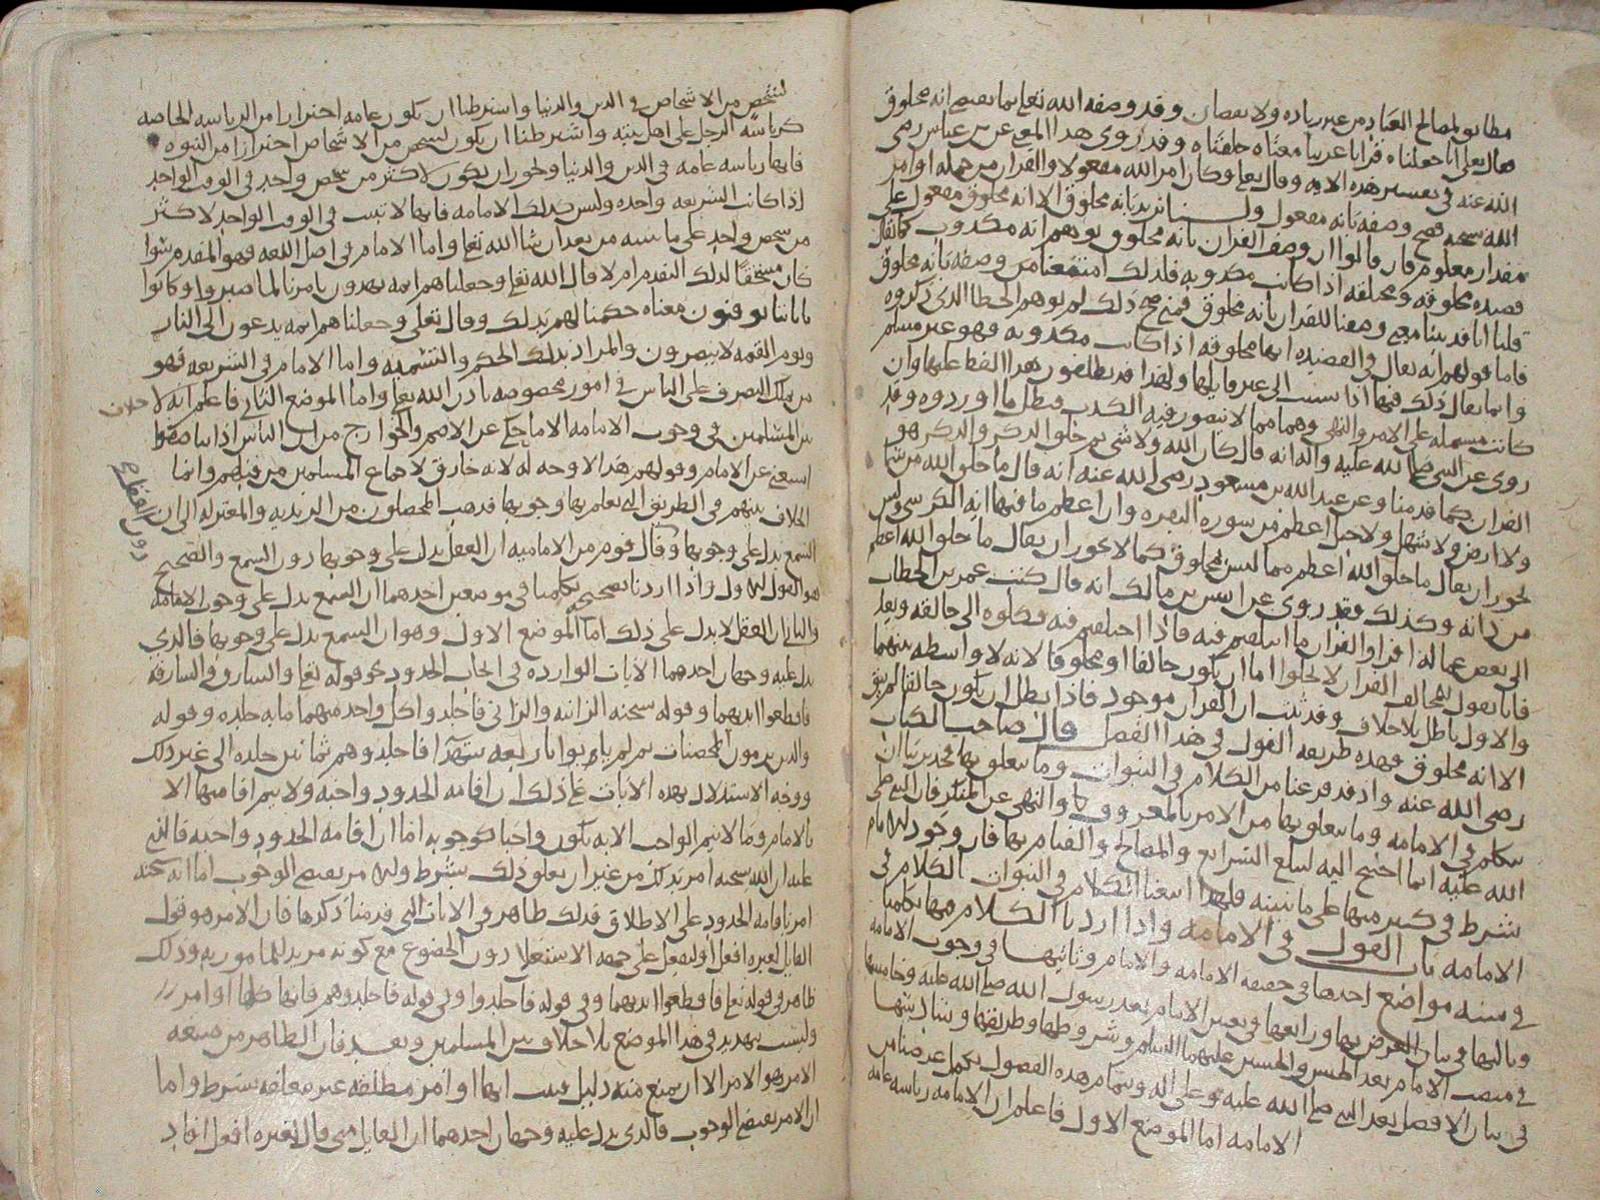 مطابق لمصالح العباد من غير زياده ولا نقصان وقد وصفه الله تعلى بما يقتضي انه مخلوق
فقال تعلى انا جعلناه قرانا عربيا معناه خلقناه وقد روي هذا المعنى عن بن عباس رضي
الله عنه في تفسير هذه الايه وقال تعلى وكان امر الله مفعولا والقران من جمله اوامر
الله سبحنه فصح وصفه بانه مفعول ولسنا نريد بانه مخلوق الا انه مخلوق مفعول على
مقدار معلوم فان قالوا ان وصف القران بانه مخلوق يوهم انه مكذوب كما يقال
قصيده مخلوقه ومختلقه اذا كانت مكذوبه فلذلك امتنعنا من وصفه بانه مخلوق
قلنا انا قد بينا معنى وصفنا للقران بانه مخلوق فمتى صح ذلك لم يوهم الخطا الذي ذكروه
فاما قولهم انه يقال في القصيده انها مخلوقه اذا كانت مكذوبه فهو غير مسلم
وانما يقال ذلك فيها اذا نسبت الى غير قايلها ولهذا قد يطلقون هذا اللفظ عليها وان
كانت مشتمله على الامر والنهي وهما مما لا يتصور فيه الكذب فبطل ما اوردوه وقد
روي عن النبي صلى الله عليه واله انه قال كان الله ولا شي ثم خلق الذكر والذكر هو
القران كما قدمنا وعن عبد الله بن مسعود رضي الله عنه انه قال ما خلق الله من سما
ولا ارض ولا سهل ولا جبل اعظم من سوره البقره وان اعظم ما فيها ايه الكرسي وليس
يجوز ان يقال ما خلق الله اعظم مما ليس بمخلوق كما لا يجوز ان يقال ما خلق الله اعظم
من ذاته وكذلك فقد روي عن انس بن مالك انه قال كتب عمر بن الخطاب
الى بعض عماله اقروا القران ما ايتلفتم فيه فاذا اختلفتم فيه فكلوه الى خالقه وبعد
فانا نقول لمخالف القران لا يخلوا اما ان يكون خالقا او مخلوقا لانه لا واسطه بينهما
والاول باطل بلا خلاف وقد ثبت ان القران موجود فاذا بطل ان يكون خالقا لم يبق
الا انه مخلوق فهذه طريقه القول في هذا الفصل قال صاحب الكتاب
رضي الله عنه واذ قد فرغنا من الكلام في النبوات وما يتعلق بها فحد بنا ان
نتكلم في الامامه وما يتعلق بها من الامر بالمعروف والنهي عن المنكر فان النبي صلى
الله عليه انما احتيج اليه لتبليغ الشرايع والمصالح والقيام بها فان وجود الامام
شرط في كثير منها على ما نبينه فلهذا اتبعنا الكلام في النبوات الكلام في
الامامه باب القول في الامامه واذا اردنا الكلام فيها تكلمنا
في سته مواضع احدها في حقيقه الامامه والامام وثانيها في وجوب الامامه
وثالثها في بيان الغرض بها ورابعها في تعيين الامام بعد رسول الله صلى الله عليه وخامسها
في منصب الامام بعد الحسن والحسين عليهما السلم وشروطها وطريقها وسادسها
في بيان الافضل بعد النبي صلى الله عليه وعلى اله وبتمام هذه الفصول يكمل غرضنا من
الامامه اما الموضع الاول فاعلم ان الامامه رياسه عامه
لشخص من الاشخاص في الدين والدنيا واشترطنا ان يكون عامه احترازا من الرياسه الخاصه
كرياسه الرجل على اهل بيته واشترطنا ان يكون لشخص من الاشخاص احترازا من النبوه
فانها رياسه عامه في الدين والدنيا ويجوز ان يكون لاكثر من شخص واحد في الوقت الواحد
اذا كانت الشريعه واحده وليس كذلك الامامه فانها لا تثبت في الوقت الواحد لاكثر
من شخص واحد على ما نبينه من بعد ان شا الله تعلى واما الامام في اصل اللغه فهو المقدم سوا
كان مستحقا لذلك التقدم ام لا قال الله تعلى وجعلناهم ايمه يهدون بامرنا لما صبروا وكانوا
باياتنا يوقنون معناه حكمنا لهم بذلك وقال تعلى وجعلناهم ايمه يدعون الى النار
ويوم القيمه لا ينصرون والمراد بذلك الحكم والتسميه واما الامام في الشريعه فهو
من يملك التصرف على الناس في امور مخصوصه باذن الله تعلى واما الموضع الثاني فاعلم انه لا خلاف
بين المسلمين في وجوب الامامه الا ما يحكى عن الاصم والخوارج من ان الناس اذا تناصفوا
استغني عن الامام وقولهم هذا لا وجه له لانه خارق لاجماع المسلمين من قبلهم وانما
الخلاف بينهم في الطريق التي يعلم بها وجوبها فذهب المحصلون من الزيديه والمعتزله الى ان
دون العقل
السمع يدل على وجوبها وقال قوم من الاماميه ان العقل يدل على وجوبها دون السمع والصحيح
هو القول الاول واذا اردنا تصحيحه تكلمنا في موضعين احدهما ان السمع يدل على وجوب الامامه
والثاني ان العقل لا يدل على ذلك اما الموضع الاول وهو ان السمع يدل على وجوبها فالذي
يدل عليه وجهان احدهما الايات الوارده في ايجاب الحدود نحو قوله تعلى والسارق والسارقه
فاقطعوا ايديهما وقوله سبحنه الزانيه والزاني فاجلدوا كل واحد منهما مايه جلده وقوله
والذين يرمون المحصنات ثم لم ياتوا باربعه شهدا فاجلدوهم ثمانين جلده الى غير ذلك
ووجه الاستدلال بهذه الايات على ذلك ان اقامه الحدود واجبه ولا يتم اقامتها الا
بالامام وما لا يتم الواجب الا به يكون واجبا كوجوبه اما ان اقامه الحدود واجبه فالذي
عليه ان الله سبحنه امر بذلك من غير ان يعلق ذلك بشرط والامر يقتضي الوجوب اما انه سبحنه
امر باقامه الحدود على الاطلاق فذلك ظاهر في الايات التي قدمنا ذكرها فان الامر هو قول
القايل لغيره افعل او ليفعل على جهه الاستعلا دون الخضوع مع كونه مريدا للمامور به وذلك
ظاهر في قوله تعلى فاقطعوا ايديهما وفي قوله فاجلدوا وفي قوله فاجلدوهم فانها كلها اوامر
وليست بتهديد في هذا الموضع بلا خلاف بين المسلمين وبعد فان الظاهر من صيغه
الامر هو الامر الا ان يمنع منه دليل فثبت انها اوامر مطلقه غير معلقه بشرط واما
ان الامر يقتضي الوجوب فالذي يدل عليه وجهان احدهما ان القايل متى قال لغيره افعل افاد